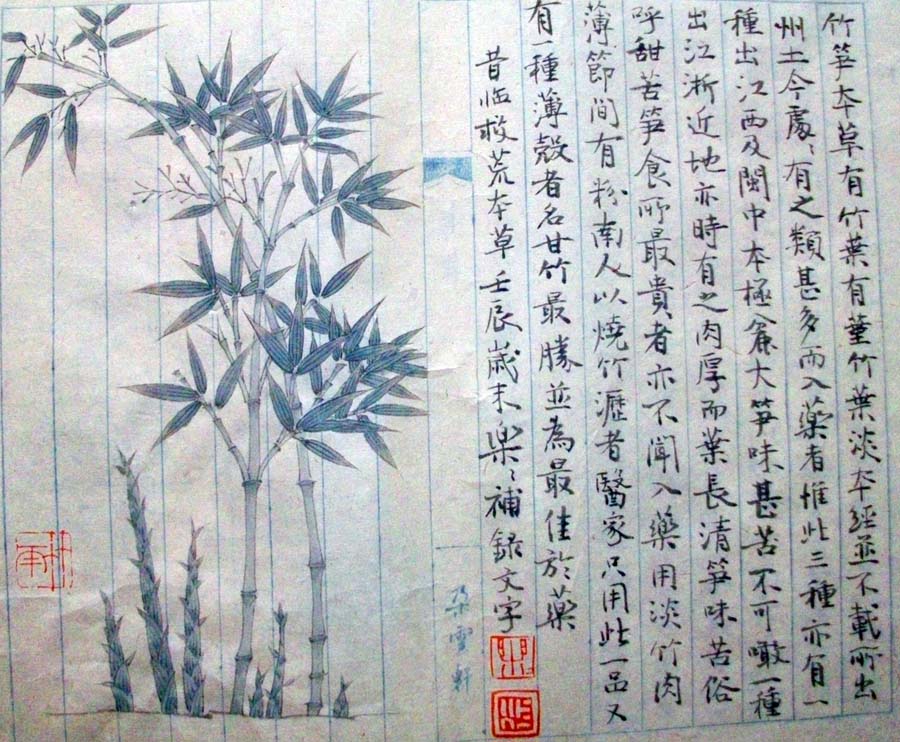 竹笋本草有竹葉有菫竹葉淡本經並不載所出
州土今處〻有之類甚多而入藥者惟此三種亦有一
種出江西及閩中本極麄大笋味甚苦不可噉一種
出江浙近地亦時有之肉厚而葉長清笋味苦俗
呼甜苦笋食所最貴者亦不聞入藥用淡竹肉
薄節間有粉南人以燒竹瀝者醫家只用此一品又
有一種薄殼者名甘竹最勝並為最佳於藥
昔临救荒本草壬辰歲末樂〻補録文字
朶雲軒